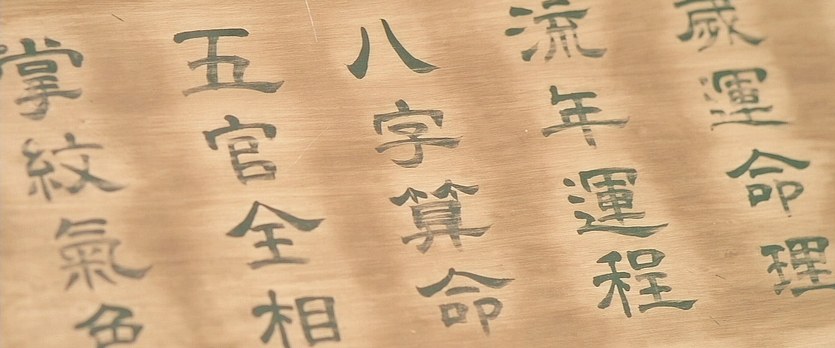 歲運命理
流年運程
八字算命
五官全相
掌紋氣色